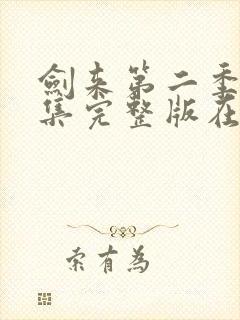 劍来第二季
集完整版在
索有為